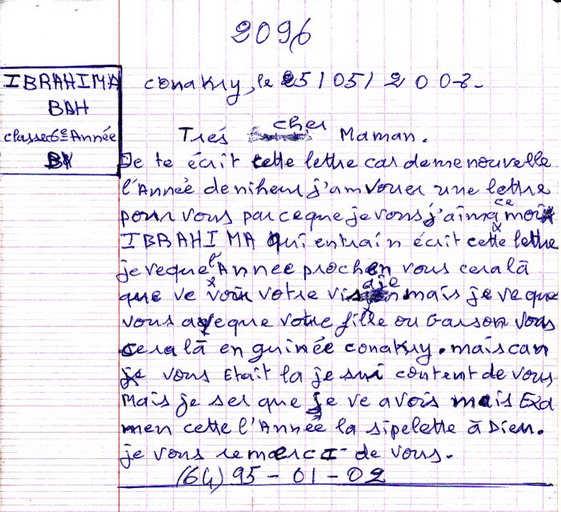 2096
IBRAHIMA
BAH
classe 6e Année
conakry, le 25/05/2008-
Trés cher Maman.
Je te écrit cette lettre car demenouvelle
l'Année deniheur j'amvouer une lettre
pour vous parceque je vous j'aime ce moi
IBRAHIMA qui entrain écrit cette lettre
je veque l'Annee prochen vous cera là
que ve voir votre visage mais je ve que
vous aveque votre fille ou Garson vous
cera là en guinée conakry. mais can
je vous Etait la je sui content de vous
Mais je ser que je ve avois mes Exa
men cette l'Année la sipelette à Dieu.
je vous remerci de vous.
(64) 95-01-02